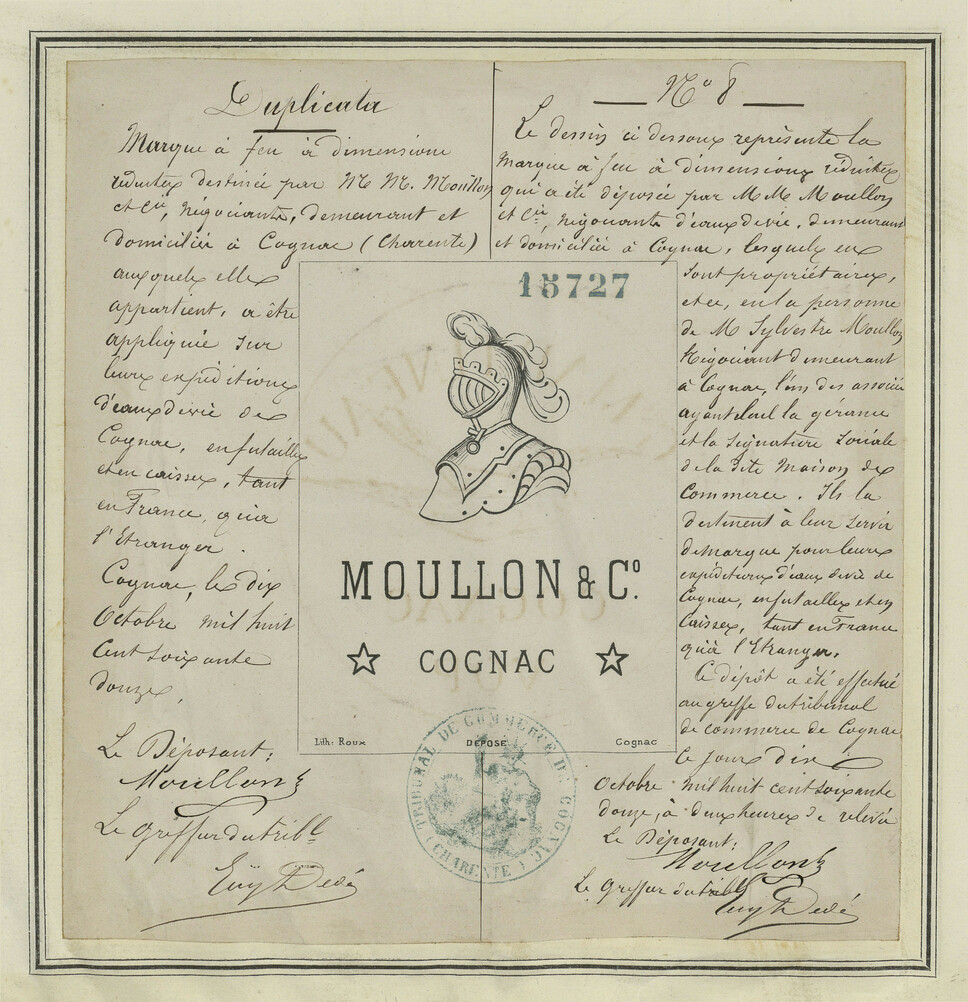 Duplicata
Marque à feu à dimensions
réduites destinée par M M. Moullon
et Cie, Négociants, demeurant et
domiciliés à Cognac (Charente)
auxquels elle
appartient, à être
appliquée sur
leurs expéditions
d'eaux de vie de
Cognac, en futailles
et en caisses, tant
en France, qu'à
l'Etranger.
Cognac, le dix
Octobre mil huit
cent soixante
douze.
Le Déposant:
Moullon
Le Greffier du tribl.
No 8
Le dessin ci dessous représente la
Marque à feu à dimensions réduites
qui a été déposée par M M. Moullon
et Cie, Négociants d'eaux de vie, demeurant
et domiciliés à Cognac, lesquels en
sont propriétaires,
et ce, en la personne
de M Sylvestre Moullon
Négociant demeurant
à Cognac, l'un des associés
ayant seul la gérance
et la signature sociale
de la dite Maison de
Commerce. Ils la
destinent à leur servir
de marque pour leurs
expéditions d'eaux de vie de
Cognac, en futailles et en
Caisses, tant en France
qu'à l'Etranger.
Ce dépôt a été effectué
au greffe du tribunal
de commerce de Cognac
ce jour dix
Octobre mil huit cent soixante
douze à deux heures de relevée
Le Déposant:
Moullon
Le Greffier du tribl
15727
MOULLON & Co.
☆ COGNAC ☆
Lith: Roux DEPOSÉ Cognac
TRIBUNAL DE COMMERCE DE COGNAC
(CHARENTE)